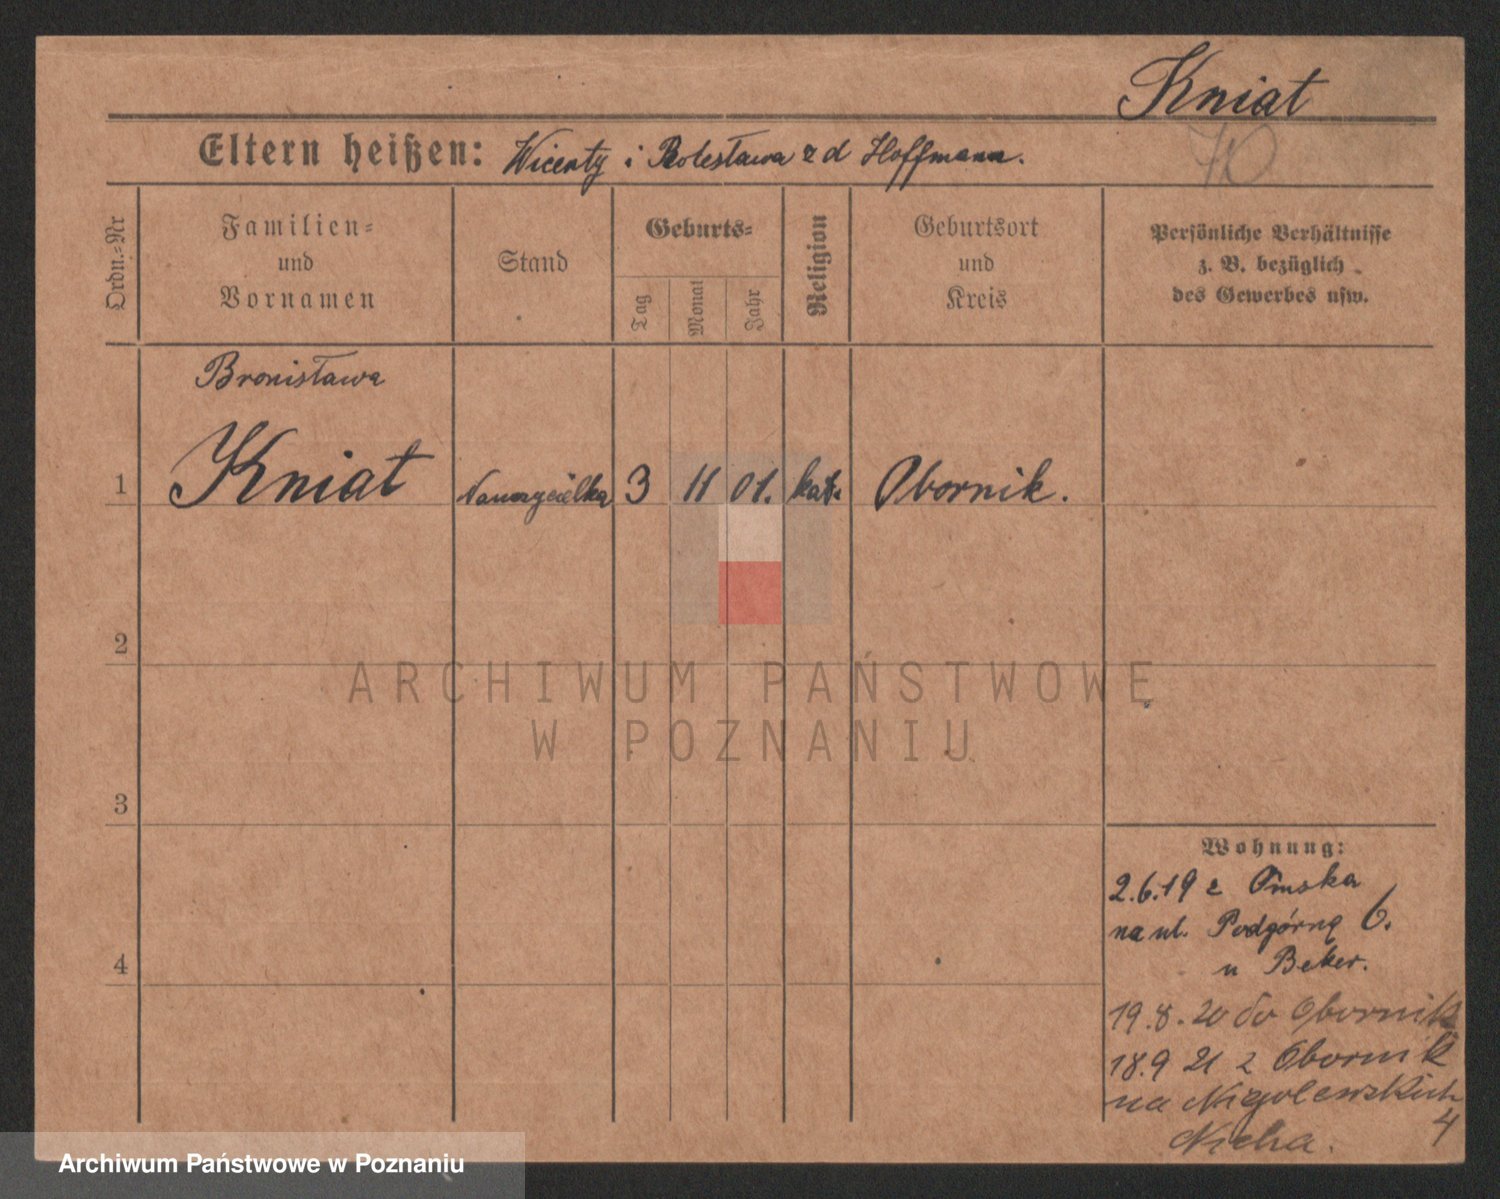 Kniat
70
Eltern heißen: Wicenty i Bolesława z d Hoffmann.
Ordn.=Nr
Familien=
und
Vornamen
Stand
Geburts=
Tag
Monat
Jahr
Religion
Geburtsort
und
Kreis
Persönliche Verhältnisse
z. B. bezüglich
des Gewerbes usw.
Bronisława
1 Kniat Nauczycielka 3 11 01. kat. Obornik.
2
3
4
Wohnung:
2.6.19 z
na ul. Podgórną 6.
u Beker.
19.8.20 do Obornik
18.9 21 z Obornik
na Niegolewskich
4
ARCHIWUM PAŃSTWOWE
W POZNANIU
Archiwum Państwowe w Poznaniu